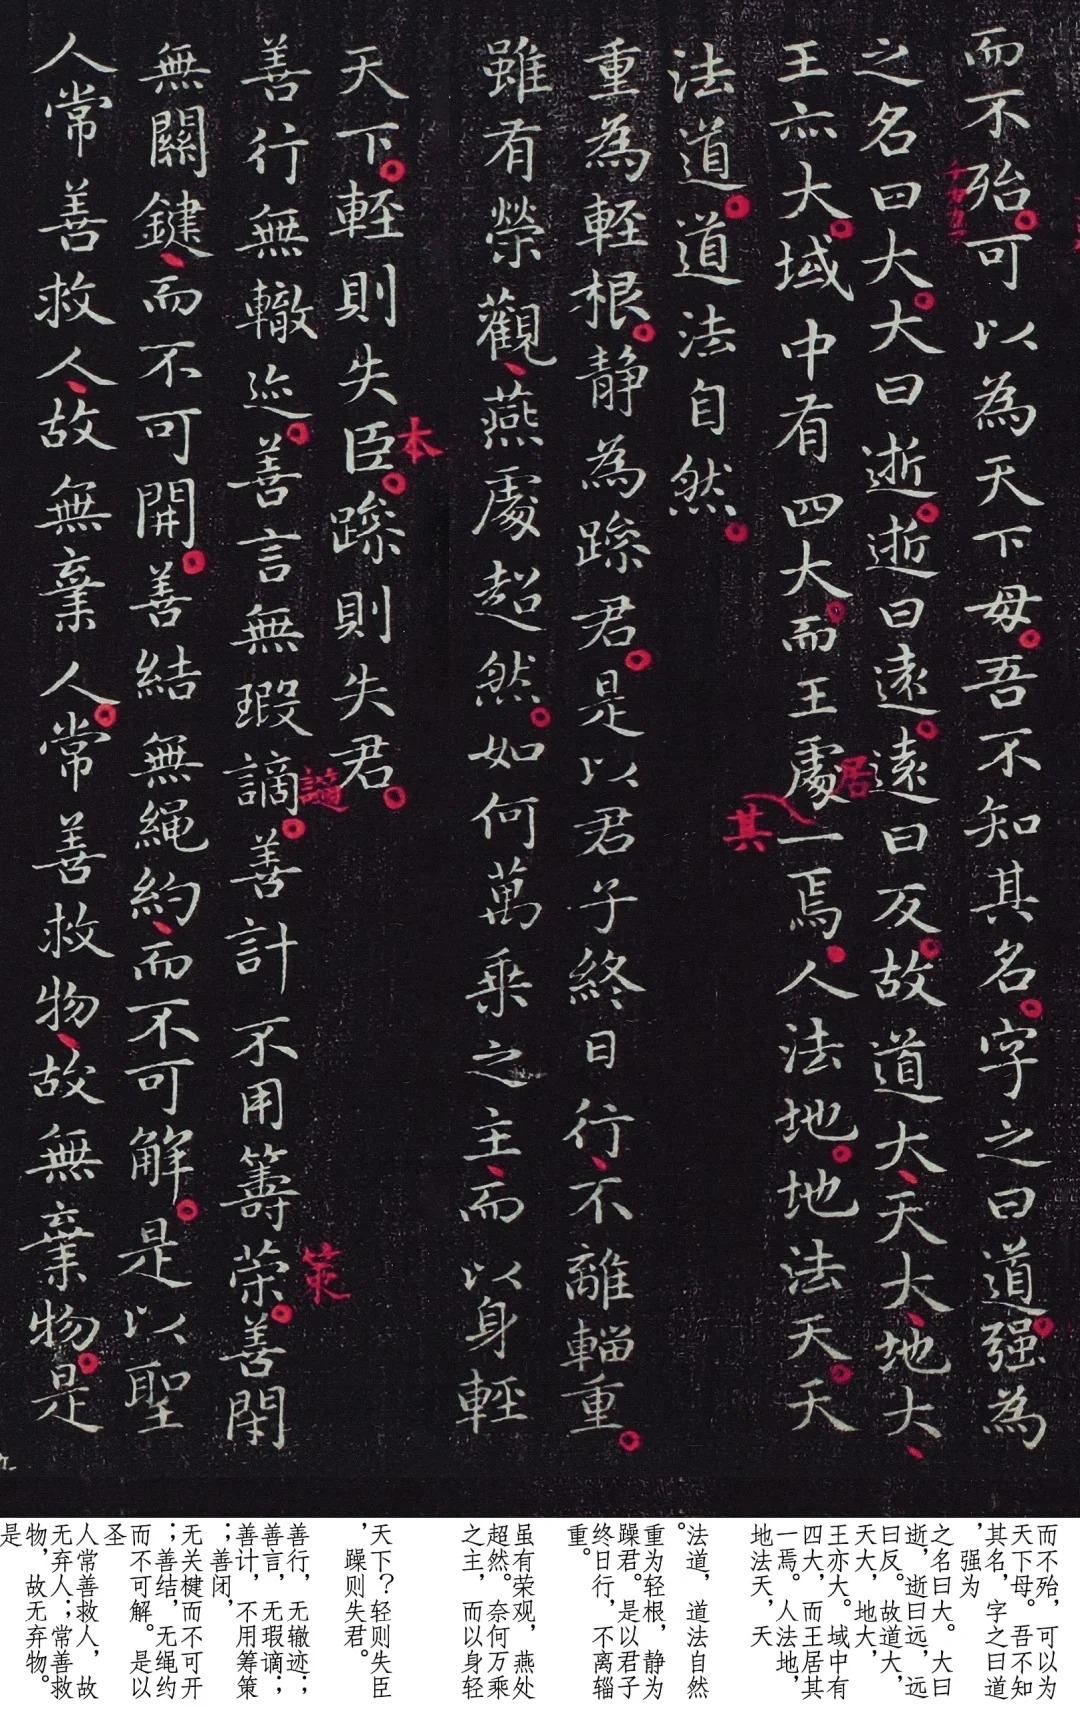 而不殆可以為天下母吾不知其名字之曰道强為
之名曰大大曰逝逝曰遠遠曰反故道大天大地大
王亦大域中有四大而王處一焉人法地地法天天
法道道法自然
重為輕根静為躁君是以君子終日行不離輜重
雖有榮觀燕處超然如何萬乘之主而以身輕
天下輕則失臣躁則失君
善行無轍迹善言無瑕謫善計不用籌策善閉
無關鍵而不可開善結無繩約而不可解是以聖
人常善救人故無棄人常善救物故無棄物是
居
其
本
謫
策
而不殆，可以为
天下母。吾不知
其名，字之曰道
，强为
之名曰大。大曰
逝，逝曰远，远
曰反。故道大，
天大，地大，
王亦大。域中有
四大，而王居其
一焉。人法地，
地法天，天
法道，道法自然
。
重为轻根，静为
躁君。是以君子
终日行，不离辎
重。
虽有荣观，燕处
超然。奈何万乘
之主，而以身轻
天下？轻则失臣
，躁则失君。
善行，无辙迹；
善言，无瑕谪；
善计，不用筹策
；善闭，
无关楗而不可开
；善结，无绳约
而不可解。是以
圣
人常善救人，故
无弃人；常善救
物，故无弃物。
是